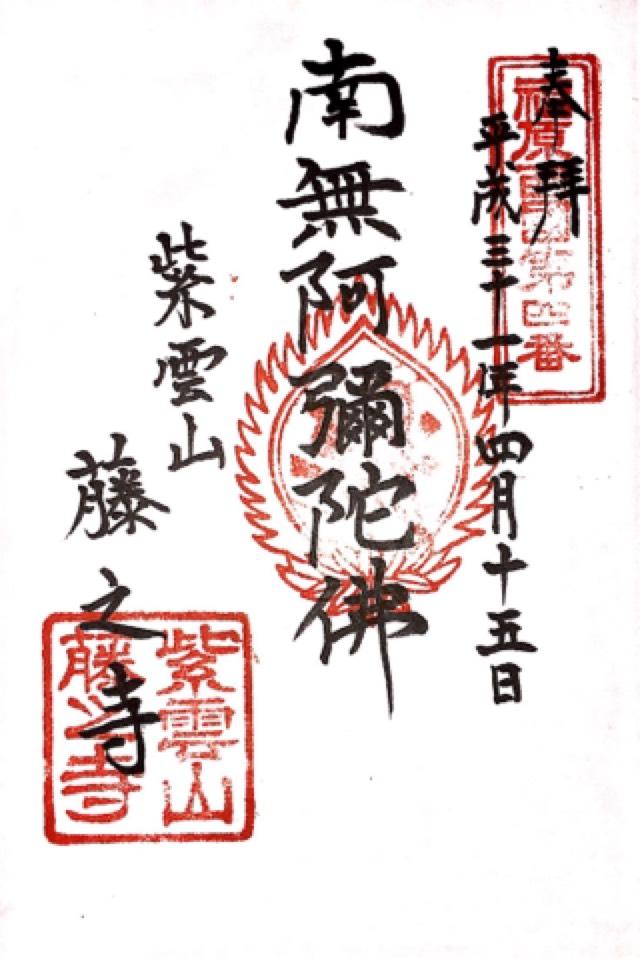 奉拝
平成三十一年四月十五日
第四番
南無阿彌陀佛
紫雲山
藤之寺
紫雲山
藤之寺